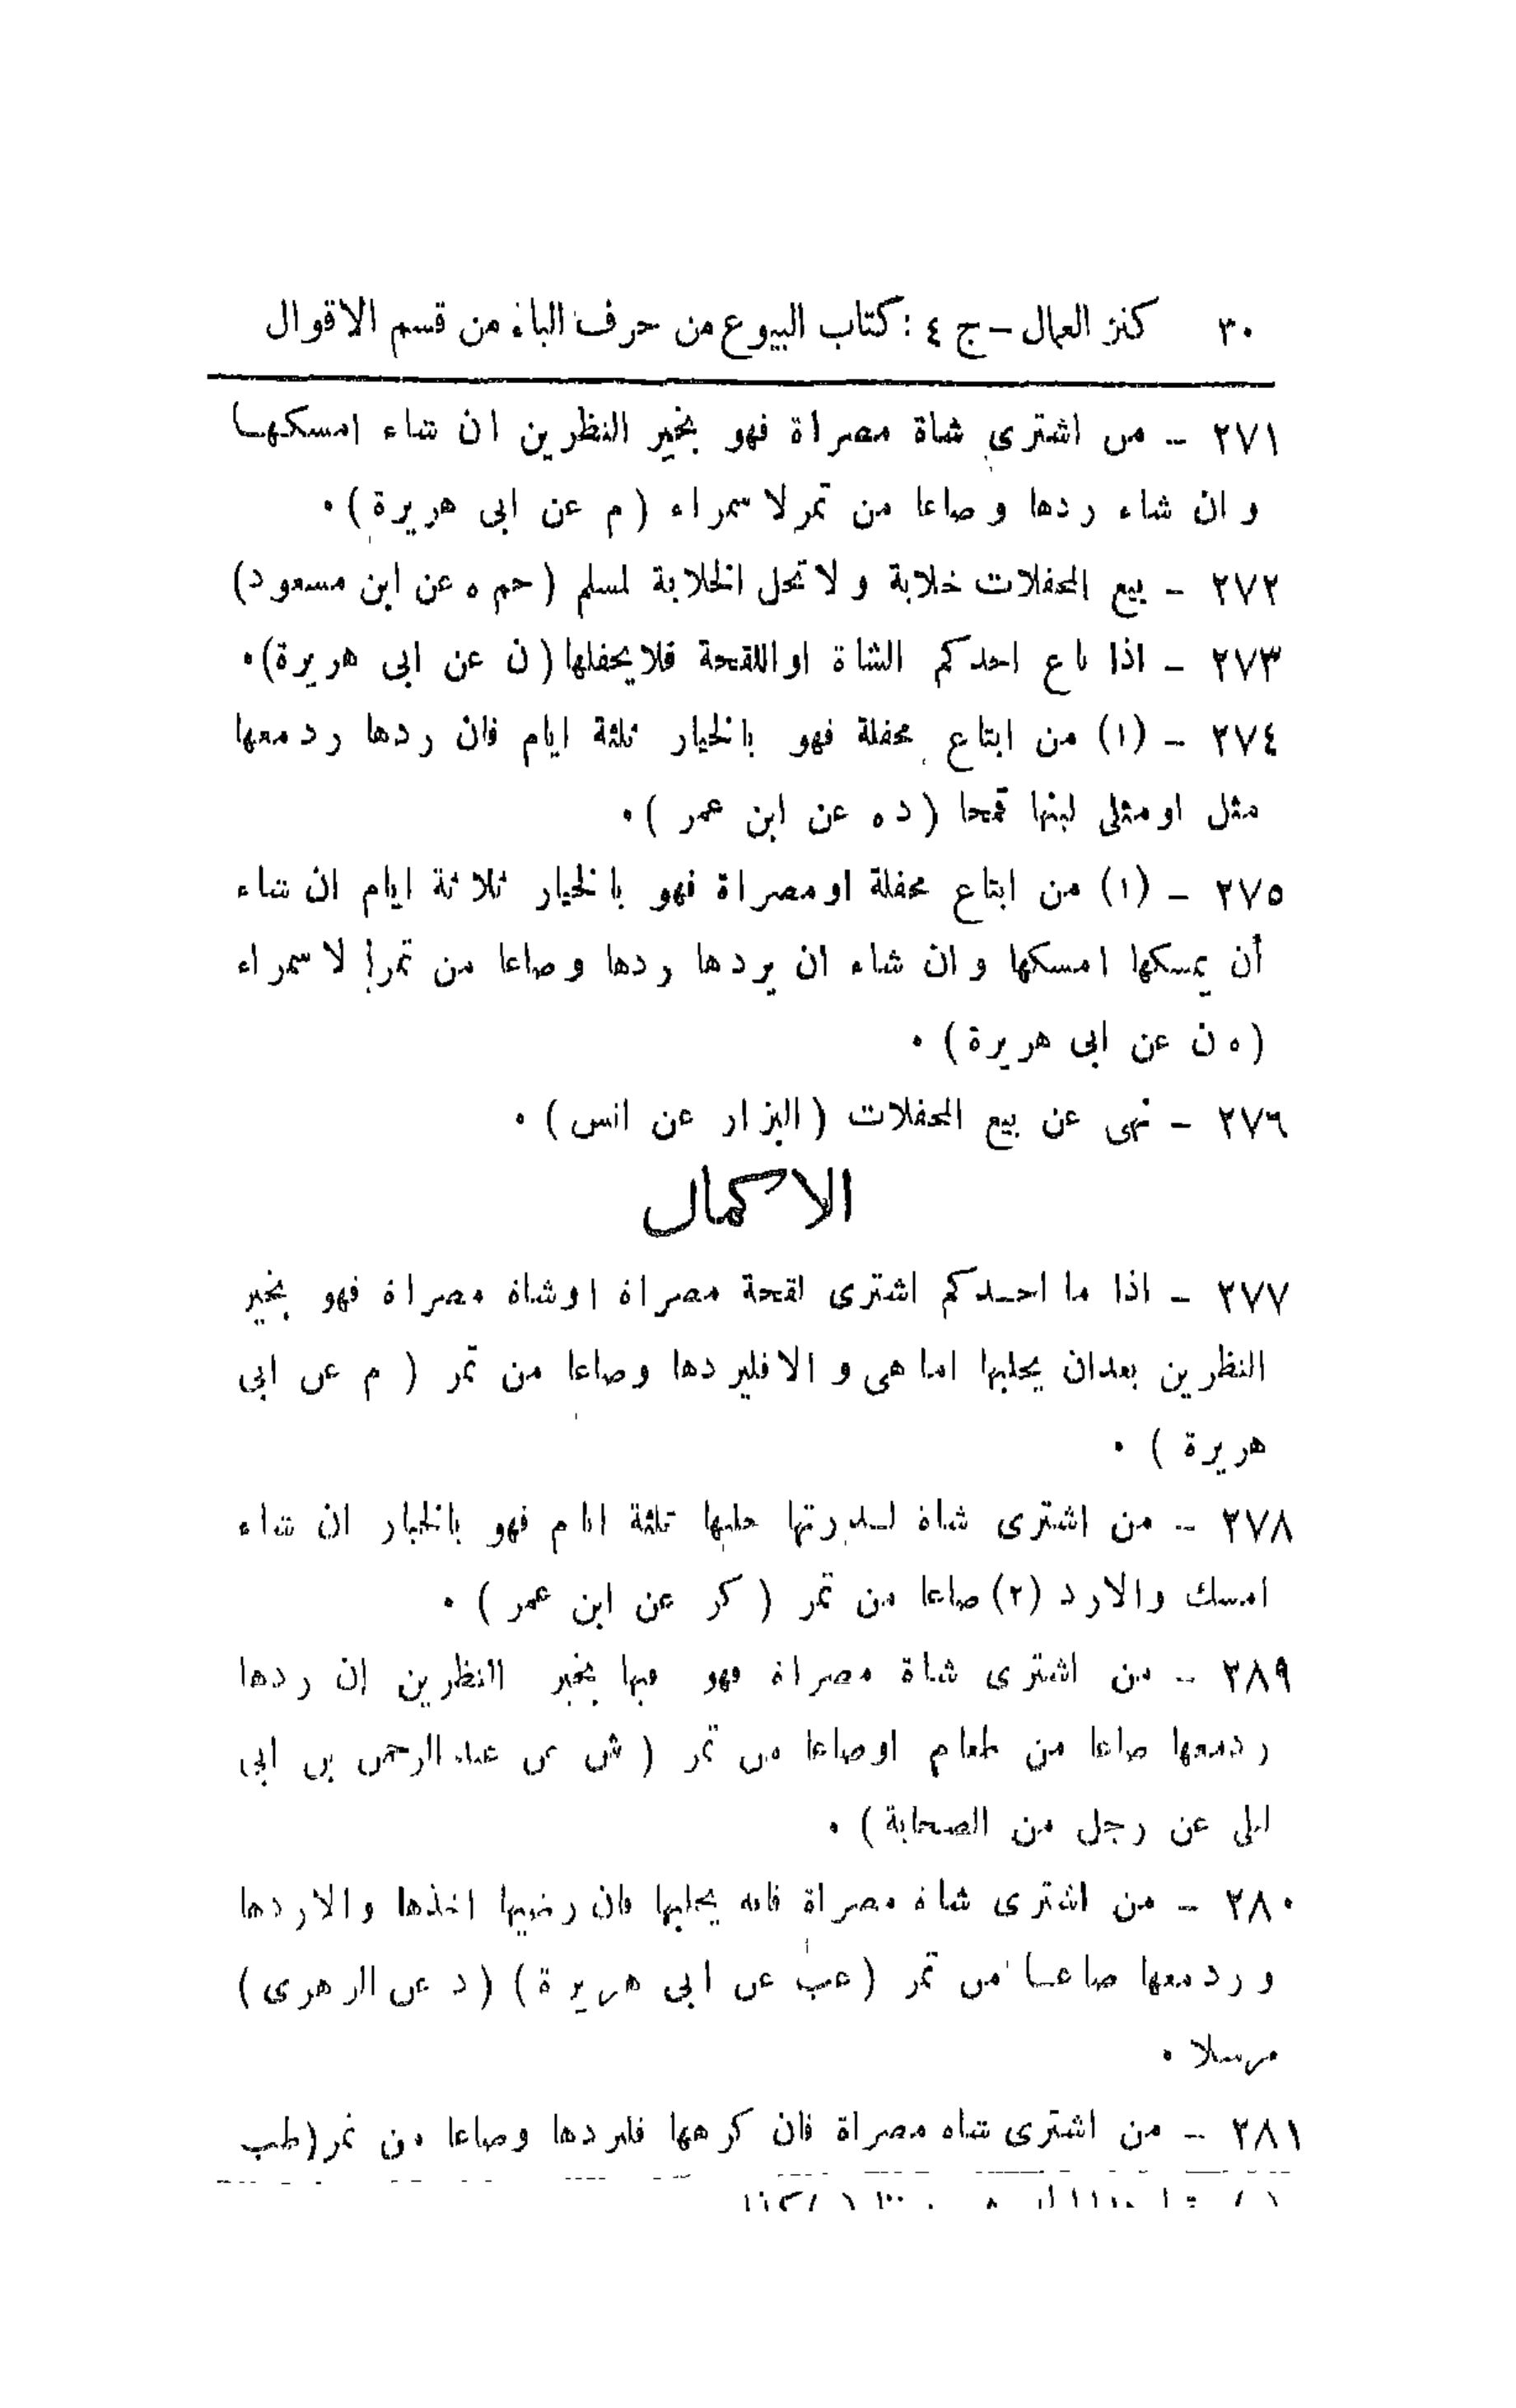 ٣٠ كنز العمال – ج ٤ : كتاب البيوع من حرف الباء من قسم الاقوال
٢٧١ – من اشترى شاة مصراة فهو بخير النظرين ان شاء امسكها
و ان شاء ردها و صاعا من تمر لا سمراء ( م عن ابى هريرة ) ٠
٢٧٢ – بيع المحفلات خلابة و لا تحل الخلابة لمسلم ( حم ه عن ابن مسعود )
٢٧٣ – اذا باع احدكم الشاة او اللقحة فلا يحفلها ( ن عن ابى هريرة ) ٠
٢٧٤ – (١) من ابتاع محفلة فهو بالخيار ثلثة ايام فان ردها رد معها
مثل او مثلى لبنها قمحا ( د ه عن ابن عمر ) ٠
٢٧٥ – (١) من ابتاع محفلة او مصراة فهو بالخيار ثلاثة ايام ان شاء
أن يمسكها امسكها و ان شاء ان يردها ردها و صاعا من تمر لا سمراء
( ه ن عن ابى هريرة ) ٠
٢٧٦ – نهى عن بيع المحفلات ( البزار عن انس ) ٠
الاكمال
٢٧٧ – اذا ما احدكم اشترى لقحة مصراة او شاة مصراة فهو بخير
النظرين بعد ان يحلبها اما هى و الا فليردها و صاعا من تمر ( م عن ابى
هريرة ) ٠
٢٧٨ – من اشترى شاة لدرتها حلبها ثلثة ايام فهو بالخيار ان شاء
امسك والا رد (٢) صاعا من تمر ( كر عن ابن عمر ) ٠
٢٨٩ – من اشترى شاة مصراة فهو فيها بخير النظرين إن ردها
رد معها صاعا من طعام او صاعا من تمر ( ش عن عبد الرحمن بن ابى
ليلى عن رجل من الصحابة ) ٠
٢٨٠ – من اشترى شاة مصراة فانه يحلبها فان رضيها اخذها والا ردها
و رد معها صاعا من تمر ( عب عن ابى هريرة ) ( د عن الزهرى )
مرسلا ٠
٢٨١ – من اشترى شاة مصراة فان كرهها فليردها و صاعا من تمر ( طب